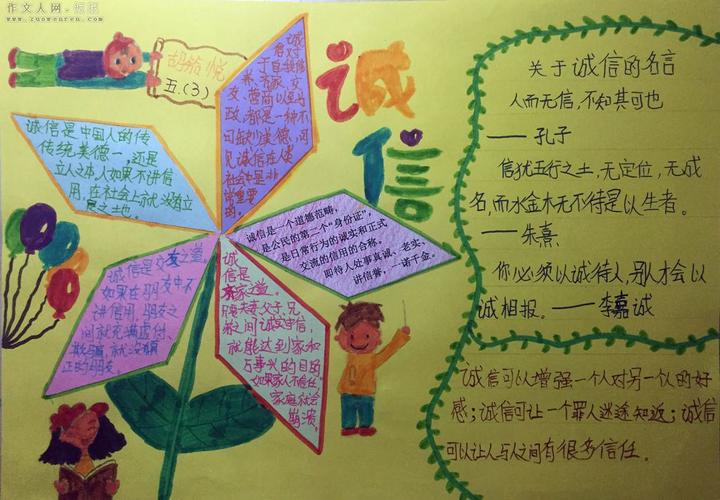 作文人网·板报
www.zuowenren.com
五.(3)
诚信
诚信是中国人的传
传统美德一,还是
立人之本人如果不讲信
用,在社会上就没有立
足之地。
诚信是一个道德范畴,
是公民的第二个“身份证”,
是日常行为的诚实和正式
交流的信用的合称。
即待人处事真诚、老实、
讲信誉,一诺千金。
诚信是交友之道,
如果在朋友中不
讲信用,朋友之
间就充满虚伪、
正的朋友。
诚
信是
齐家之道。
只要夫妻、父子、兄
弟之间诚实守信,
就能达到家和
万事兴的目的
如果家人不信任,
家庭就会
崩溃。
关于诚信的名言
人而无信,不知其可也
——孔子
信犹五行之土,无定位,无成
名,而水金木无不待是以生者。
——朱熹
你必须以诚待人,别人才会以
诚相报。——李嘉诚
诚信可以增强一个人对另一个人的好
感;诚信可让一个罪人迷途知返;诚信
可以让人与人之间有很多信任。